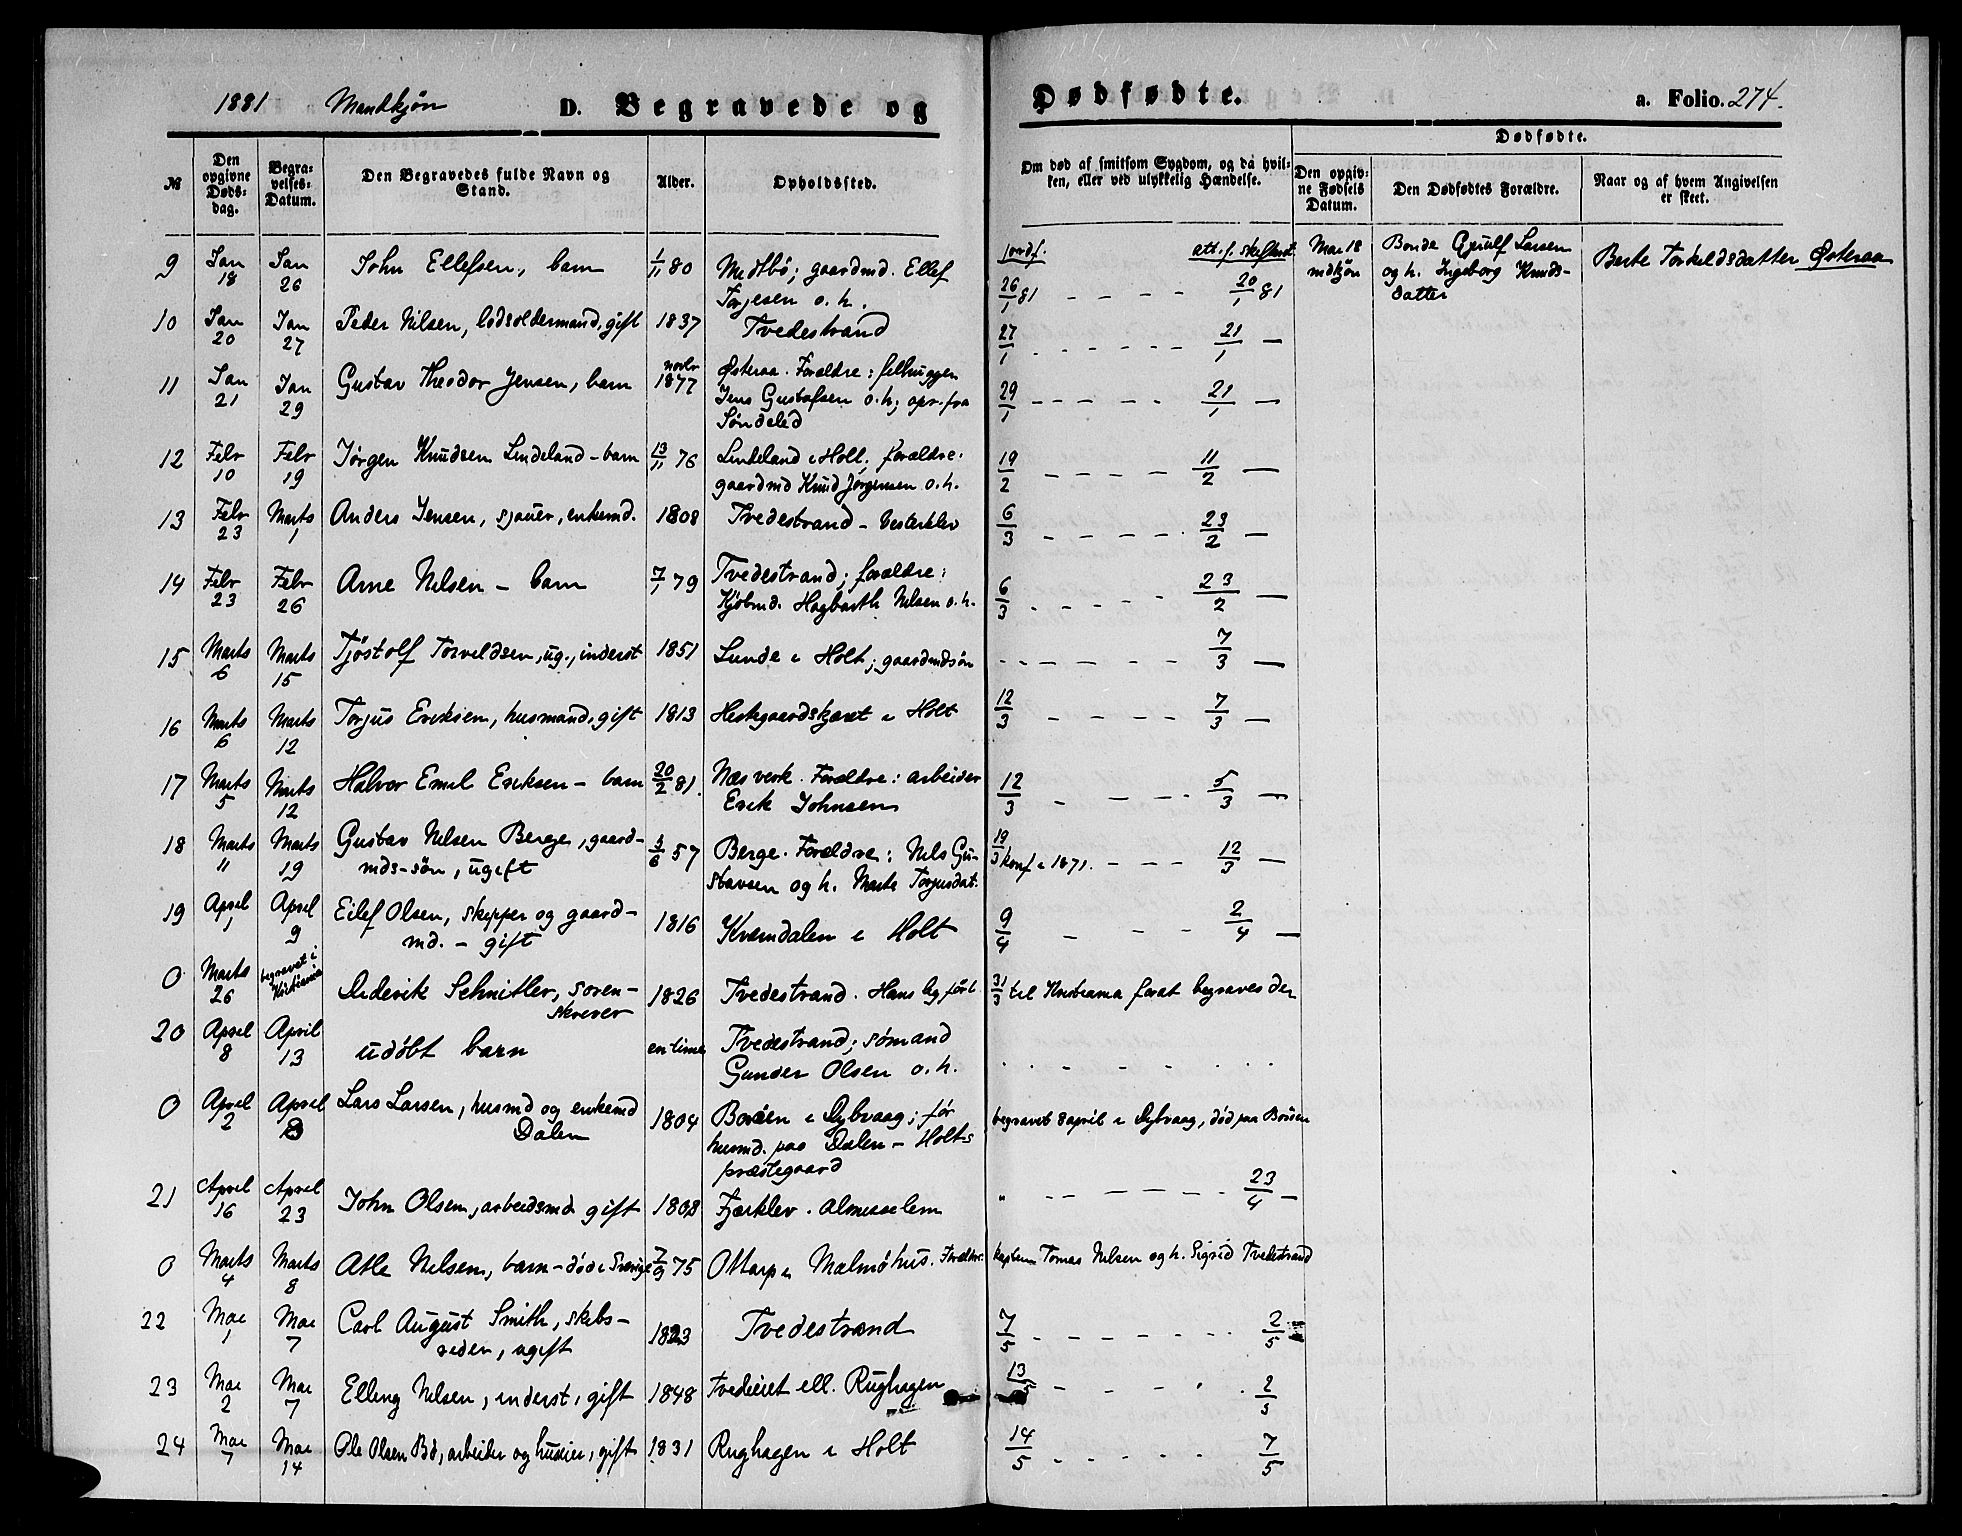 1881 Mandkjøn D. Begravede og Dødfødte. a. Folio. 274.
№ Den opgivne Døds-dag. Begra-velses-Datum. Den Begravedes fulde Navn og Stand. Alder. Opholdssted. Om død af smitsom Sygdom, og da hvil-ken, eller ved ulykkelig Hændelse. Dødfødte. Den opgiv-ne Fødsels Datum. Den Dødfødtes Forældre. Naar og af hvem Angivelsen er skeet.
9 Jan 18 Jan 26 John Ellefsen, barn 1/11 80 Medtbø; gaardmd. Ellef
Torjesen o. h.
jordf. att. f. skifteret
26/1 81 - - - - 20/1 81
Mai 18 mdkjøn Bonde Gjeulf Larsen
og h. Ingeborg Knuds-
datter
Berte Torkeldsdatter Østeraa
10 Jan 20 Jan 27 Peder Nilsen, lodsoldermand, gift 1837 Tvedestrand 27/1 - - - - - 21/1 —
11 Jan 21 Jan 29 Gustav Theodor Jensen, barn novbr 1877 Østeraa. Forældre: felhuggen
Jens Gustafsen o. h; opr. fra
Søndeled
29/1 - - - - - 21/1 —
12 Febr 10 Febr 19 Jørgen Knudsen Lindeland - barn 13/11 76 Lindeland i Holt; forældre:
gaardmd Knud Jørgensen o. h.
19/2 - - - - 11/2 —
13 Febr 23 Marts 1 Anders Jensen, sjauer, enkemd. 1808 Tvedestrand - Vesterklev 6/3 - - - - 23/2 —
14 Febr 23 Febr 26 Arne Nilsen - barn 7/1 79 Tvedestrand; forældre:
Kjøbmd. Hagbarth Nilsen o. h.
6/3 - - - - - 23/2 —
15 Marts 6 Marts 15 Tjøstolf Torveldsen, ug., inderst 1851 Lunde i Holt; gaardmdsøn - - - - - - 7/3 —
16 Marts 6 Marts 12 Torjus Eriksen, husmand, gift 1813 Hestegaardskaret i Holt 12/3 - - - - 7/3 —
17 Marts 5 Marts 12 Halvor Emil Eriksen - barn 20/2 81. Næs verk. Forældre: arbeider
Erik Johnsen
12/3 - - - - 5/3 —
18 Marts 11 Marts 19 Gustav Nilsen Berge, gaard-
mds-søn, ugift
3/6 57 Berge. Forældre: Nils Gu-
stavsen og h. Marte Torjusdat.
19/3 konf i 1871. - - - 12/3 —
19 April 1 April 9 Eilef Olsen, skipper og gaard-
md. - gift
1816 Kverndalen i Holt 9/4 - - - 2/4 —
0 Marts 26 begravet i Kristiania Diderik Schnitler, soren-
skriver
1826 Tvedestrand. Hans lig ført 31/3 til Kristiania forat begraves der
20 April 8 April 13 udøbt barn en time Tvedestrand; sømand
Gunder Olsen o. h.
0 April 2 April 8 Lars Larsen, husmd og enkemd
Dalen
1804 Boröen i Dybvaag; før
husmd. paa Dalen - Holts
præstegaard
begravet 8 april i Dybvaag, død paa Boröen
21 April 16 April 23 John Olsen, arbeidsmd gift 1808 Fjærklev. almisselem " - - - - - - 23/4 —
0 Marts 4 Marts 8 Atle Nilsen, barn - død i Sverige 7/9 75 Ottarp i Malmøhus. Forældre: kaptein Tomas Nilsen og h. Sigrid Tvedestrand
22 Mai 1 Mai 7 Carl August Smith, skibs-
reder, ugift
1823 Tvedestrand 7/5 - - - - - - 2/5 —
23 Mai 2 Mai 7 Elling Nilsen, inderst, gift 1848 Tvedieiet ell. Rughagen 13/5 - - - - - 2/5
24 Mai 7 Mai 14 Ole Olsen Bd, arbeider og huseier, gift 1831 Rughagen i Holt 14/5 - - - - - - 7/5